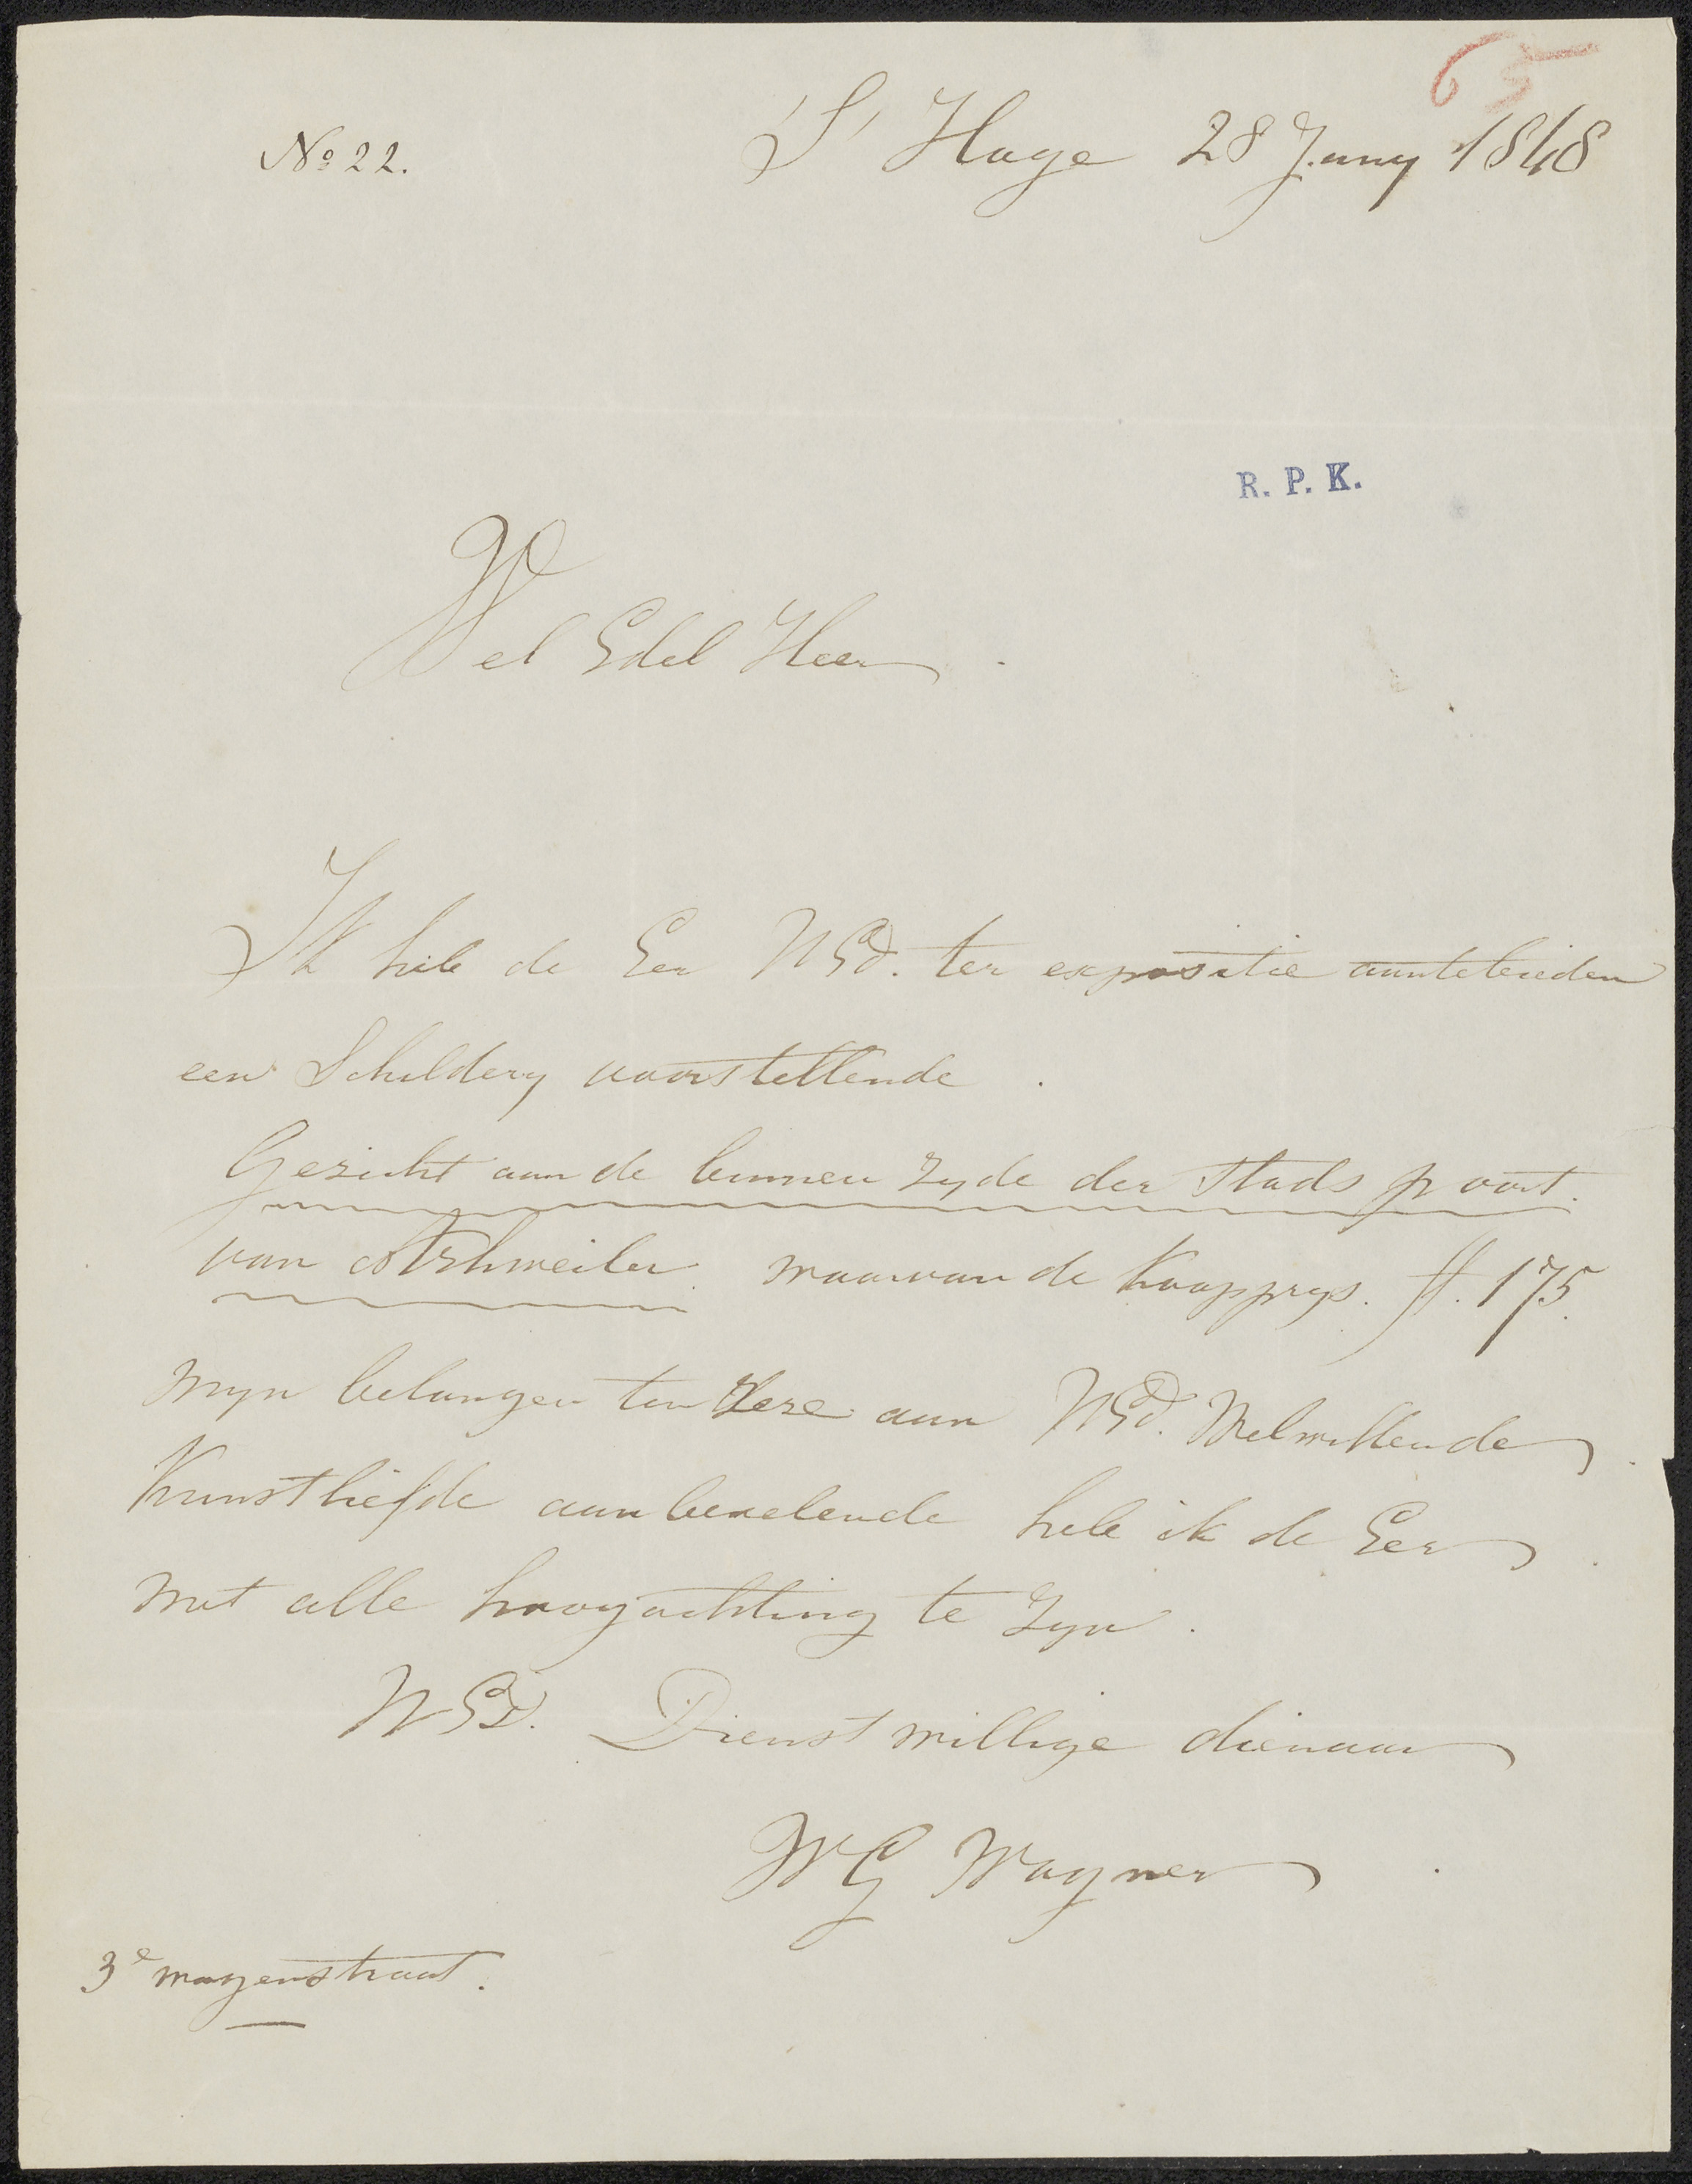 65
No 22.
'S' Hage 28 Juny 1848
R. P. K.
Wel Edel Heer
Ik heb de Eer WEd. ter expositie aantebieden
een Schildery voorstellende
Gezicht aan de binnen zyde der Stads poort.
van waarvan de Koopprys. ff. 175.
Myn belangen ten deze aan WEd. Welwillende
Kunstliefde aanbevelende heb ik de Eer
met alle hoogachting te Zyn.
WEd. Dienstwillige dienaar
WG Wagner
3e wagenstraat.